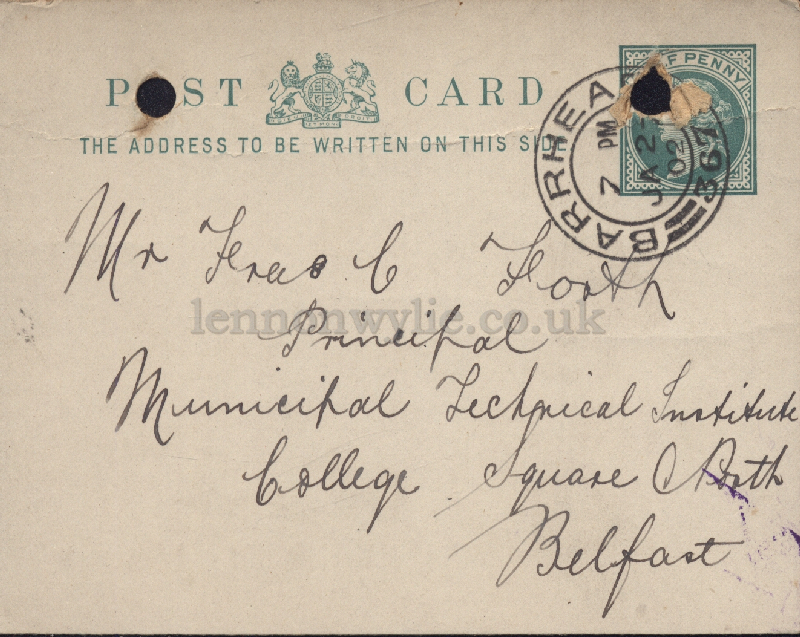 POST CARD
THE ADDRESS TO BE WRITTEN ON THIS SIDE
HALF PENNY
BARRHEAD
7 PM
JA 27
02
367
Mr Fras C Forth
lennonwylie.co.uk
Principal
Municipal Technical Institute
College Square North
Belfast